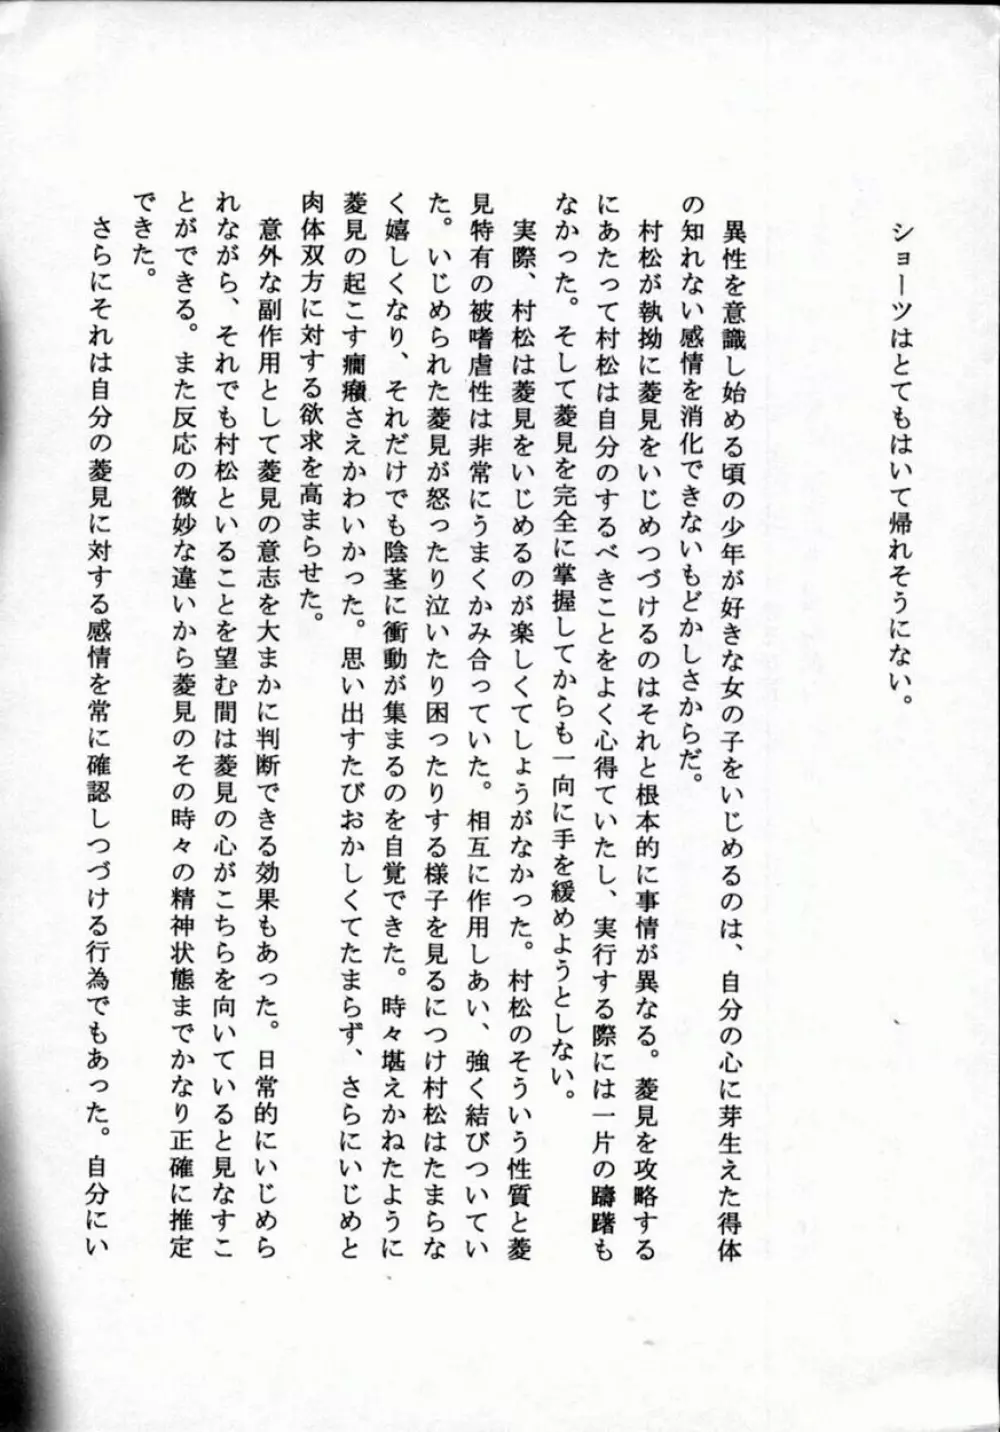 ショーツはとてもはいて帰れそうにない。
異性を意識し始める頃の少年が好きな女の子をいじめるのは、自分の心に芽生えた得体
の知れない感情を消化できないもどかしさからだ。
村松が執拗に菱見をいじめつづけるのはそれと根本的に事情が異なる。菱見を攻略する
にあたって村松は自分のするべきことをよく心得ていたし、実行する際には一片の躊躇も
なかった。そして菱見を完全に掌握してからも一向に手を緩めようとしない。
実際、村松は菱見をいじめるのが楽しくてしょうがなかった。村松のそういう性質と菱
見特有の被嗜虐性は非常にうまくかみ合っていた。相互に作用しあい、強く結びついてい
た。いじめられた菱見が怒ったり泣いたり困ったりする様子を見るにつけ村松はたまらな
く嬉しくなり、それだけでも陰茎に衝動が集まるのを自覚できた。時々堪えかねたように
菱見の起こす癇癪さえかわいかった。思い出すたびおかしくてたまらず、さらにいじめと
肉体双方に対する欲求を高まらせた。
意外な副作用として菱見の意志を大まかに判断できる効果もあった。日常的にいじめら
れながら、それでも村松といることを望む間は菱見の心がこちらを向いていると見なすこ
とができる。また反応の微妙な違いから菱見のその時々の精神状態までかなり正確に推定
できた。
さらにそれは自分の菱見に対する感情を常に確認しつづける行為でもあった。自分にい